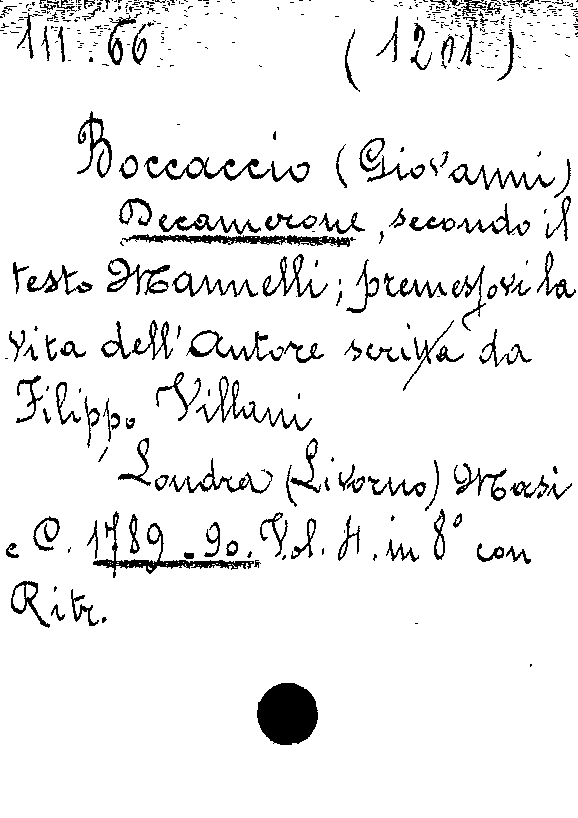 111.66 (1201)
Boccaccio (Giovanni)
Decamerone, secondo il
testo Mannelli; premessovi la
Vita dell'Autore scritta da
Filippo Villani
Londra (Livorno) Masi
e C. 1789-90. Vol. 4. in 8° con
Ritr.